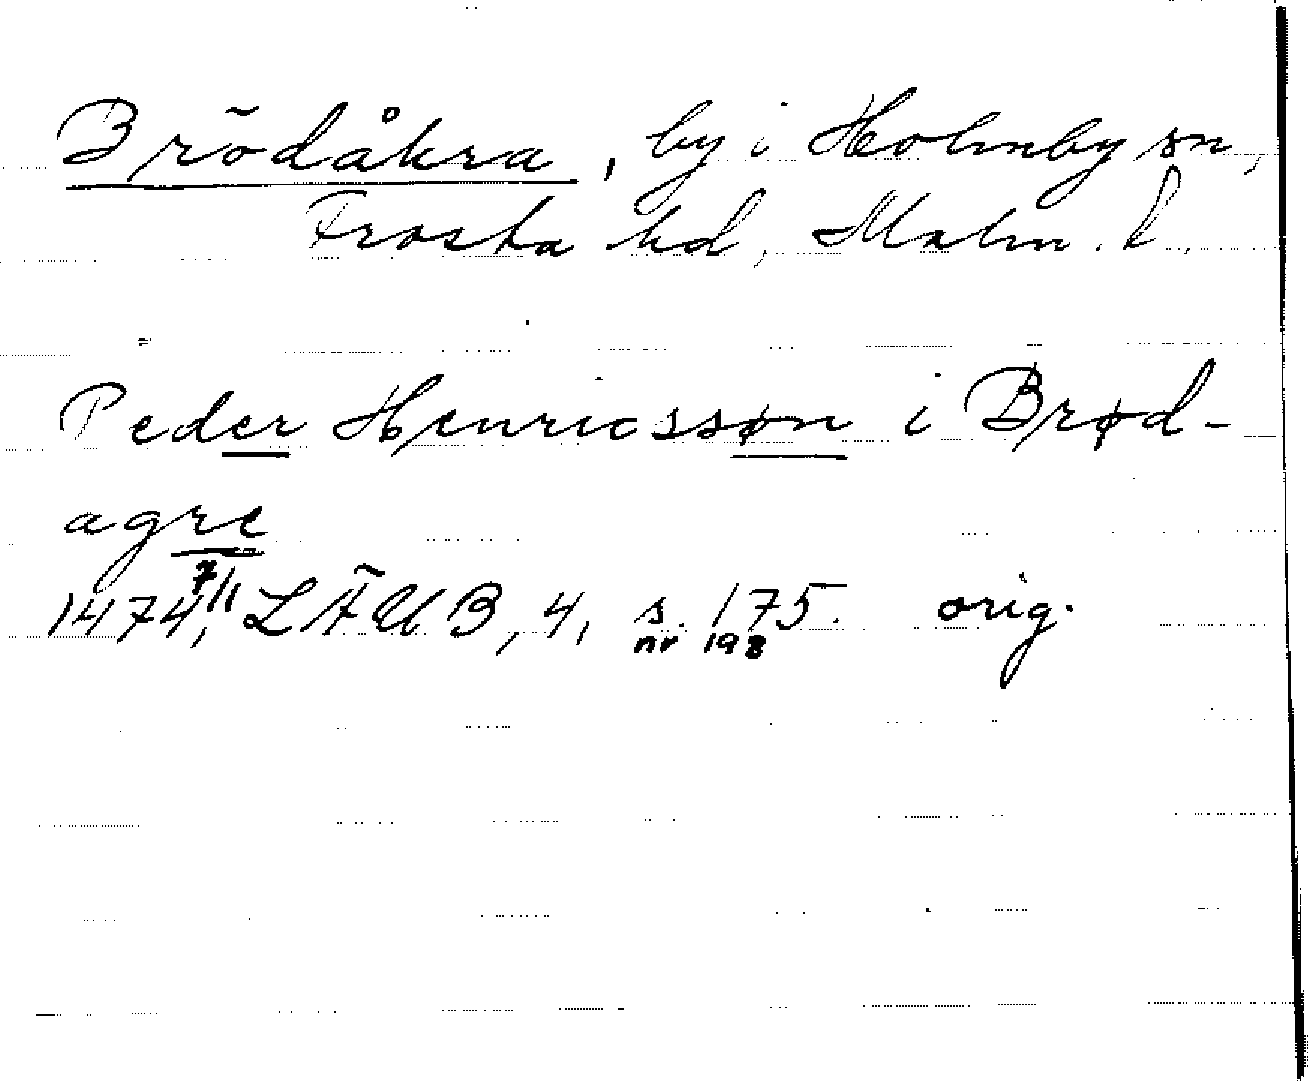 Brödåkra, by i Holmby sn,
Frosta hd, Malm. l.
Peder Henricssøn i Brød-
agre
1474, 7/1 LÄUB, 4, s. 175. orig.
nr 198